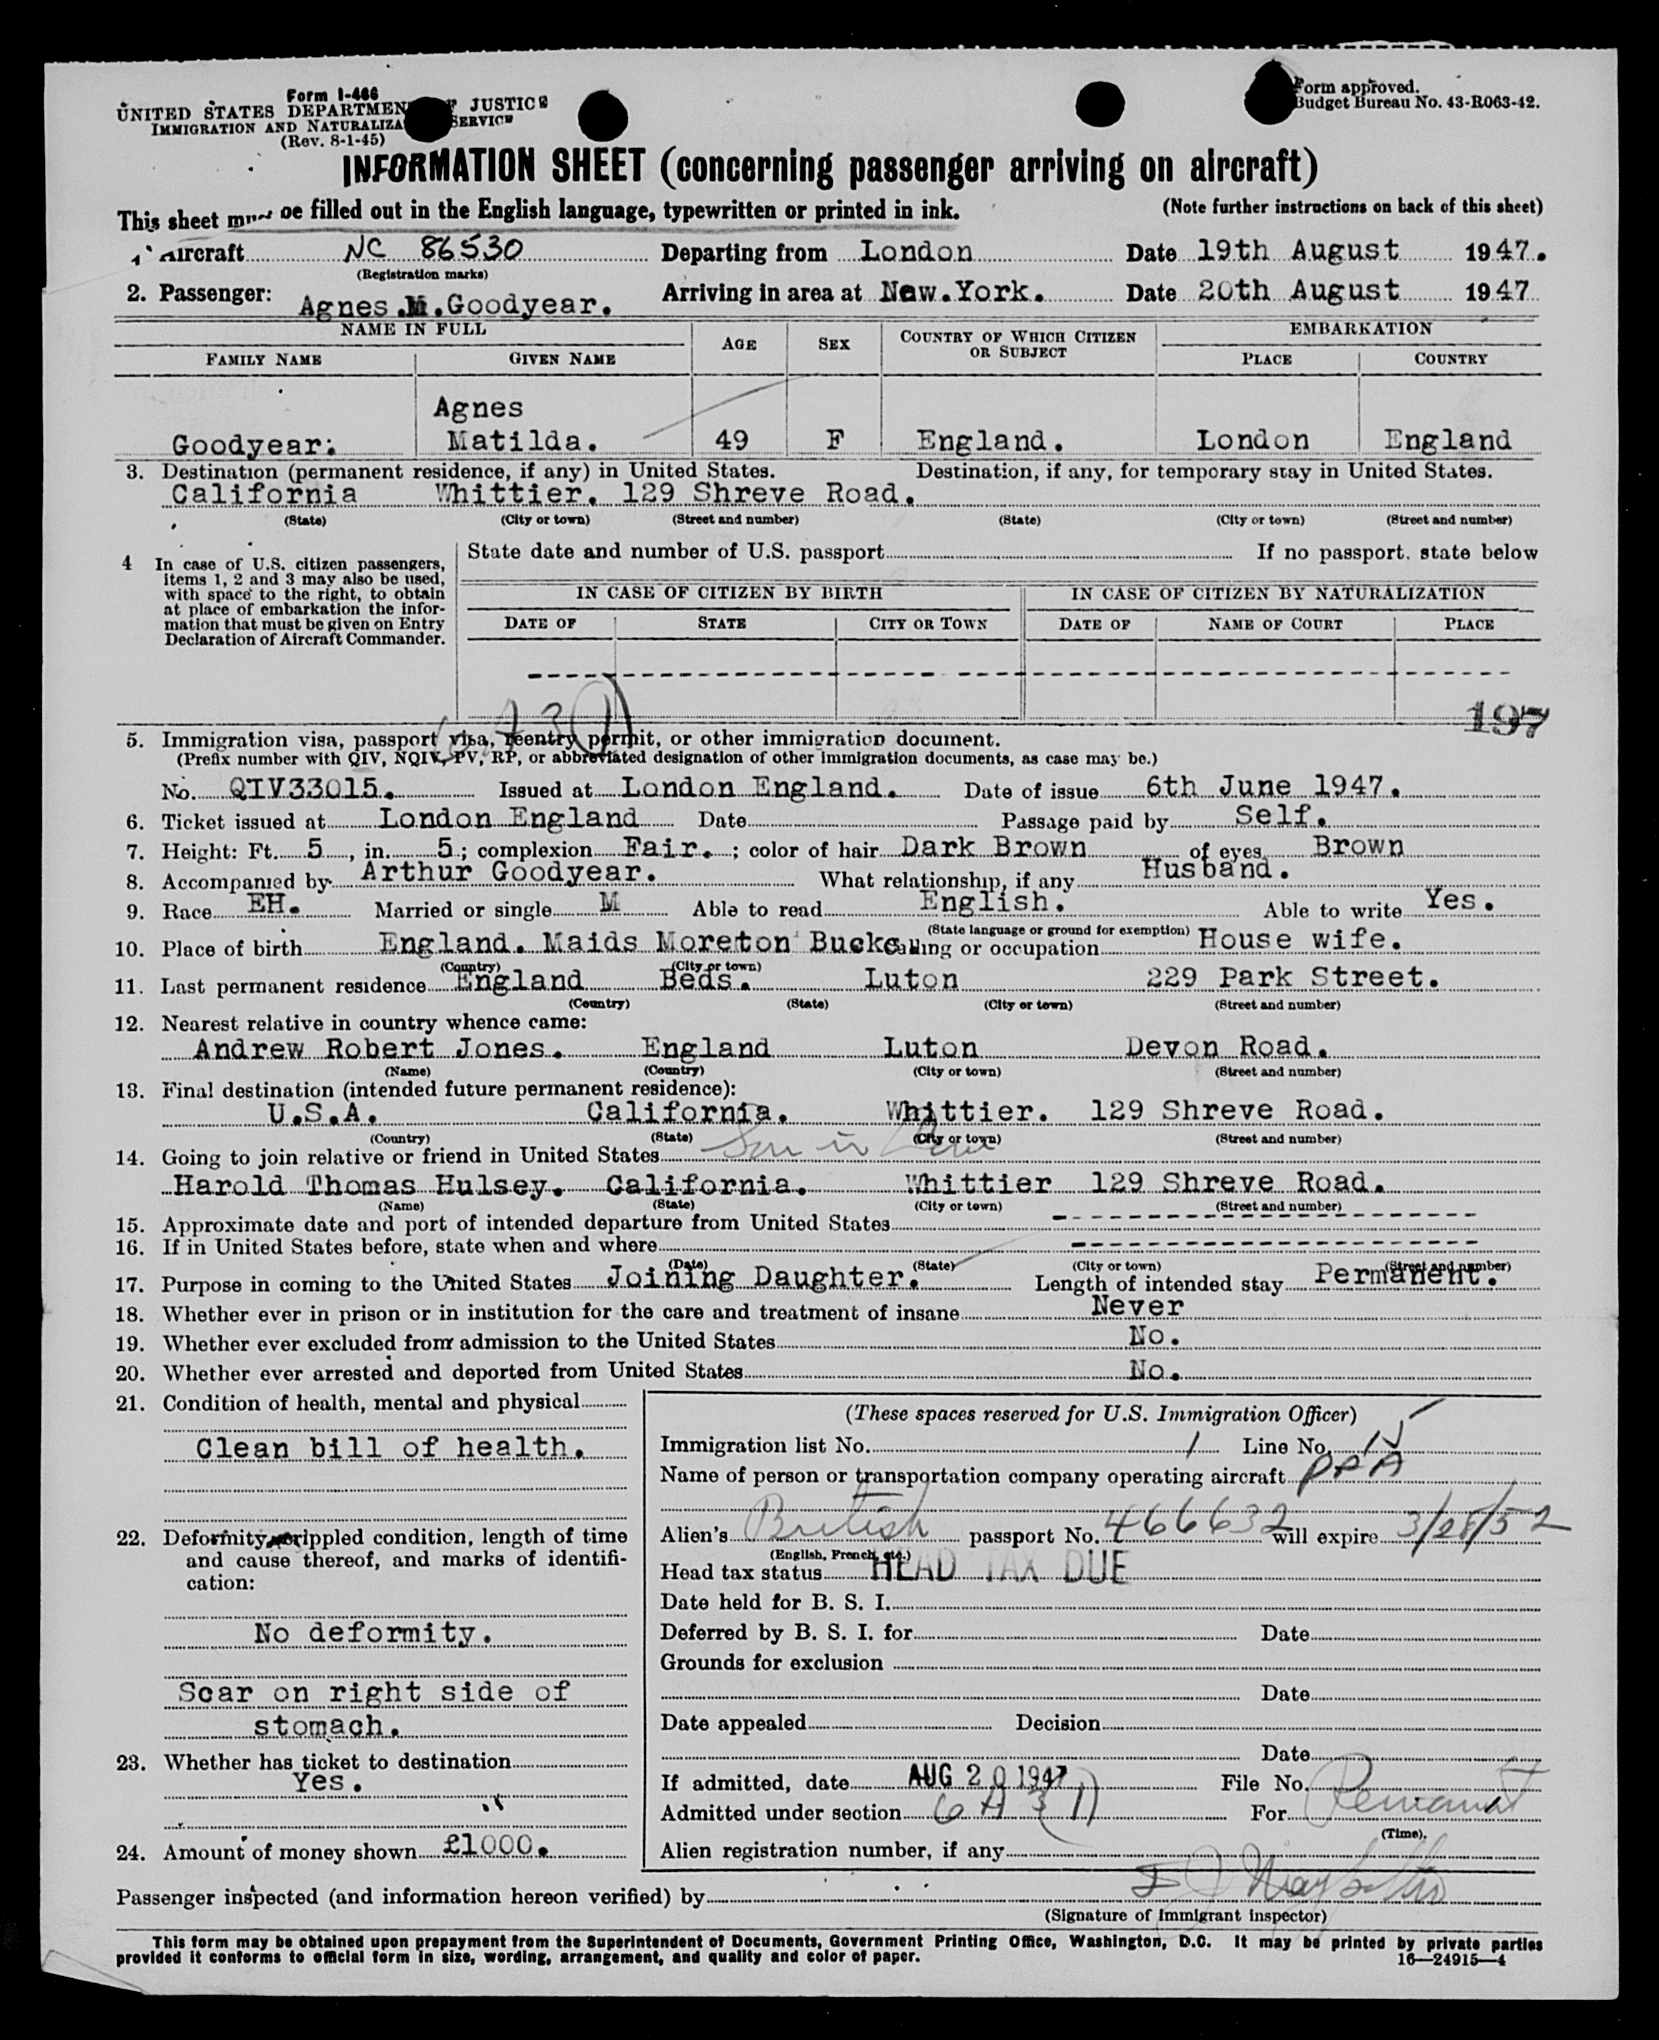 Form I-466
UNITED STATES DEPARTMENT OF JUSTICE
IMMIGRATION AND NATURALIZA SERVICE
(Rev. 8-1-45)
Form approved.
Budget Bureau No. 43-R063-42.
INFORMATION SHEET (concerning passenger arriving on aircraft)
This sheet must be filled out in the English language, typewritten or printed in ink. (Note further instructions on back of this sheet)
1. Aircraft NC 86530 Departing from London Date 19th August 1947.
(Registration marks)
2. Passenger: Agnes.M.Goodyear. Arriving in area at New.York. Date 20th August 1947
NAME IN FULL AGE SEX COUNTRY OF WHICH CITIZEN OR SUBJECT EMBARKATION
FAMILY NAME GIVEN NAME PLACE COUNTRY
Agnes
Goodyear. Matilda. 49 F England. London England
3. Destination (permanent residence, if any) in United States. Destination, if any, for temporary stay in United States.
California Whittier. 129 Shreve Road.
(State) (City or town) (Street and number) (State) (City or town) (Street and number)
4 In case of U.S. citizen passengers, items 1, 2 and 3 may also be used, with space to the right, to obtain at place of embarkation the information that must be given on Entry Declaration of Aircraft Commander.
State date and number of U.S. passport If no passport, state below
IN CASE OF CITIZEN BY BIRTH IN CASE OF CITIZEN BY NATURALIZATION
DATE OF STATE CITY OR TOWN DATE OF NAME OF COURT PLACE
197
5. Immigration visa, passport visa, reentry permit, or other immigration document.
(Prefix number with QIV, NQIV, PV, RP, or abbreviated designation of other immigration documents, as case may be.)
No. QIV33015. Issued at London England. Date of issue 6th June 1947.
6. Ticket issued at London England Date Passage paid by Self.
7. Height: Ft. 5, in. 5; complexion Fair.; color of hair Dark Brown of eyes Brown
8. Accompanied by Arthur Goodyear. What relationship, if any Husband.
9. Race EH. Married or single M Able to read English. Able to write Yes.
(State language or ground for exemption)
10. Place of birth England. Maids Moreton Bucks. Calling or occupation House wife.
(Country) (City or town)
11. Last permanent residence England Beds. Luton 229 Park Street.
(Country) (State) (City or town) (Street and number)
12. Nearest relative in country whence came:
Andrew Robert Jones. England Luton Devon Road.
(Name) (Country) (City or town) (Street and number)
13. Final destination (intended future permanent residence):
U.S.A. California. Whittier. 129 Shreve Road.
(Country) (State) (City or town) (Street and number)
14. Going to join relative or friend in United States Son in Law
Harold Thomas Hulsey. California. Whittier 129 Shreve Road.
(Name) (State) (City or town) (Street and number)
15. Approximate date and port of intended departure from United States
16. If in United States before, state when and where
(Date) (State) (City or town) (Street and number)
17. Purpose in coming to the United States Joining Daughter. Length of intended stay Permanent.
18. Whether ever in prison or in institution for the care and treatment of insane Never
19. Whether ever excluded from admission to the United States No.
20. Whether ever arrested and deported from United States No.
21. Condition of health, mental and physical
Clean bill of health.
22. Deformity, crippled condition, length of time and cause thereof, and marks of identification:
No deformity.
Scar on right side of
stomach.
23. Whether has ticket to destination
Yes.
24. Amount of money shown £1000.
(These spaces reserved for U.S. Immigration Officer)
Immigration list No. 1 Line No. 15
Name of person or transportation company operating aircraft PAA
Alien's British passport No. 466632 will expire 3/28/52
(English, French, etc.)
Head tax status HEAD TAX DUE
Date held for B. S. I.
Deferred by B. S. I. for Date
Grounds for exclusion
Date
Date appealed Decision
Date
If admitted, date AUG 20 1947 File No.
Admitted under section 6A31) For Permanent
(Time).
Alien registration number, if any
Passenger inspected (and information hereon verified) by
(Signature of immigrant inspector)
This form may be obtained upon prepayment from the Superintendent of Documents, Government Printing Office, Washington, D.C. It may be printed by private parties
provided it conforms to official form in size, wording, arrangement, and quality and color of paper. 16—24915—4